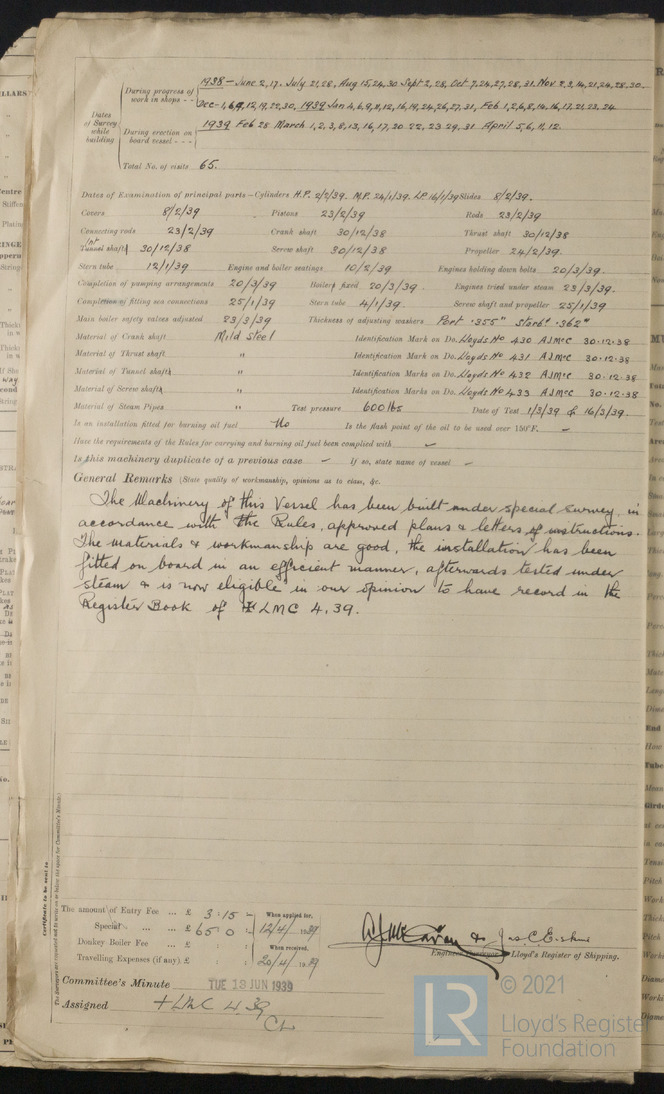 During progress of work in shops - - 1938 - June 2, 17. July 21, 28, Aug 15, 24, 30 Sept 2, 28, Oct 7, 24, 27, 28, 31. Nov 2, 3, 14, 21, 24, 28, 30.
Dec - 1, 6, 9, 12, 19, 22, 30, 1939 Jan 4, 6, 9, 11, 12, 16, 19, 24, 26, 27, 31, Feb 1, 2, 6, 8, 14, 16, 17, 21, 23, 24.
Dates of Survey while building
During erection on board vessel - - - 1939 Feb 28 March 1, 2, 3, 8, 13, 16, 17, 20 22, 23 29, 31 April 5, 6, 11, 12.
Total No. of visits 65.
Dates of Examination of principal parts - Cylinders H.P. 2/2/39. M.P. 24/1/39. LP 16/1/39 Slides 8/2/39.
Covers 8/2/39 Pistons 23/2/39 Rods 23/2/39
Connecting rods 23/2/39 Crank shaft 30/12/38 Thrust shaft 30/12/38
Tunnel shafts 30/12/38 Screw shaft 30/12/38 Propeller 24/2/39.
Stern tube 12/1/39 Engine and boiler seatings 10/2/39 Engines holding down bolts 20/3/39.
Completion of pumping arrangements 20/3/39 Boilers fixed 20/3/39. Engines tried under steam 23/3/39.
Completion of fitting sea connections 25/1/39 Stern tube 4/1/39. Screw shaft and propeller 25/1/39
Main boiler safety valves adjusted 23/3/39 Thickness of adjusting washers Port .355" Starbd .362"
Material of Crank shaft Mild Steel Identification Mark on Do. Lloyds No 430 AJMcC 30.12.38
Material of Thrust shaft " Identification Mark on Do. Lloyds No 431 AJMcC 30.12.38
Material of Tunnel shafts " Identification Marks on Do. Lloyds No 432 AJMcC 30.12.38
Material of Screw shafts " Identification Marks on Do. Lloyds No 433 AJMcC 30.12.38
Material of Steam Pipes " Test pressure 600 lbs Date of Test 1/3/39 & 16/3/39.
Is an installation fitted for burning oil fuel No Is the flash point of the oil to be used over 150°F. -
Have the requirements of the Rules for carrying and burning oil fuel been complied with -
Is this machinery duplicate of a previous case - If so, state name of vessel -
General Remarks (State quality of workmanship, opinions as to class, &c.
The Machinery of this Vessel has been built under special survey, in
accordance with the Rules, approved plans & letters of instructions.
The materials & workmanship are good, the installation has been
fitted on board in an efficient manner, afterwards tested under
steam & is now eligible in our opinion to have record in the
Register Book of LMC 4,39.
Certificate to be sent to
The amount of Entry Fee ... £ 3 : 15 : - When applied for,
Special ... ... £ 65 : 0 : 12/4/1939
Donkey Boiler Fee ... £ : : When received,
Travelling Expenses (if any) £ : : 20/4/1939
Engineer Surveyor to Lloyd's Register of Shipping.
Committee's Minute TUE 13 JUN 1939
Assigned + LMC 4 39
CL
LR © 2021
Lloyd's Register
Foundation